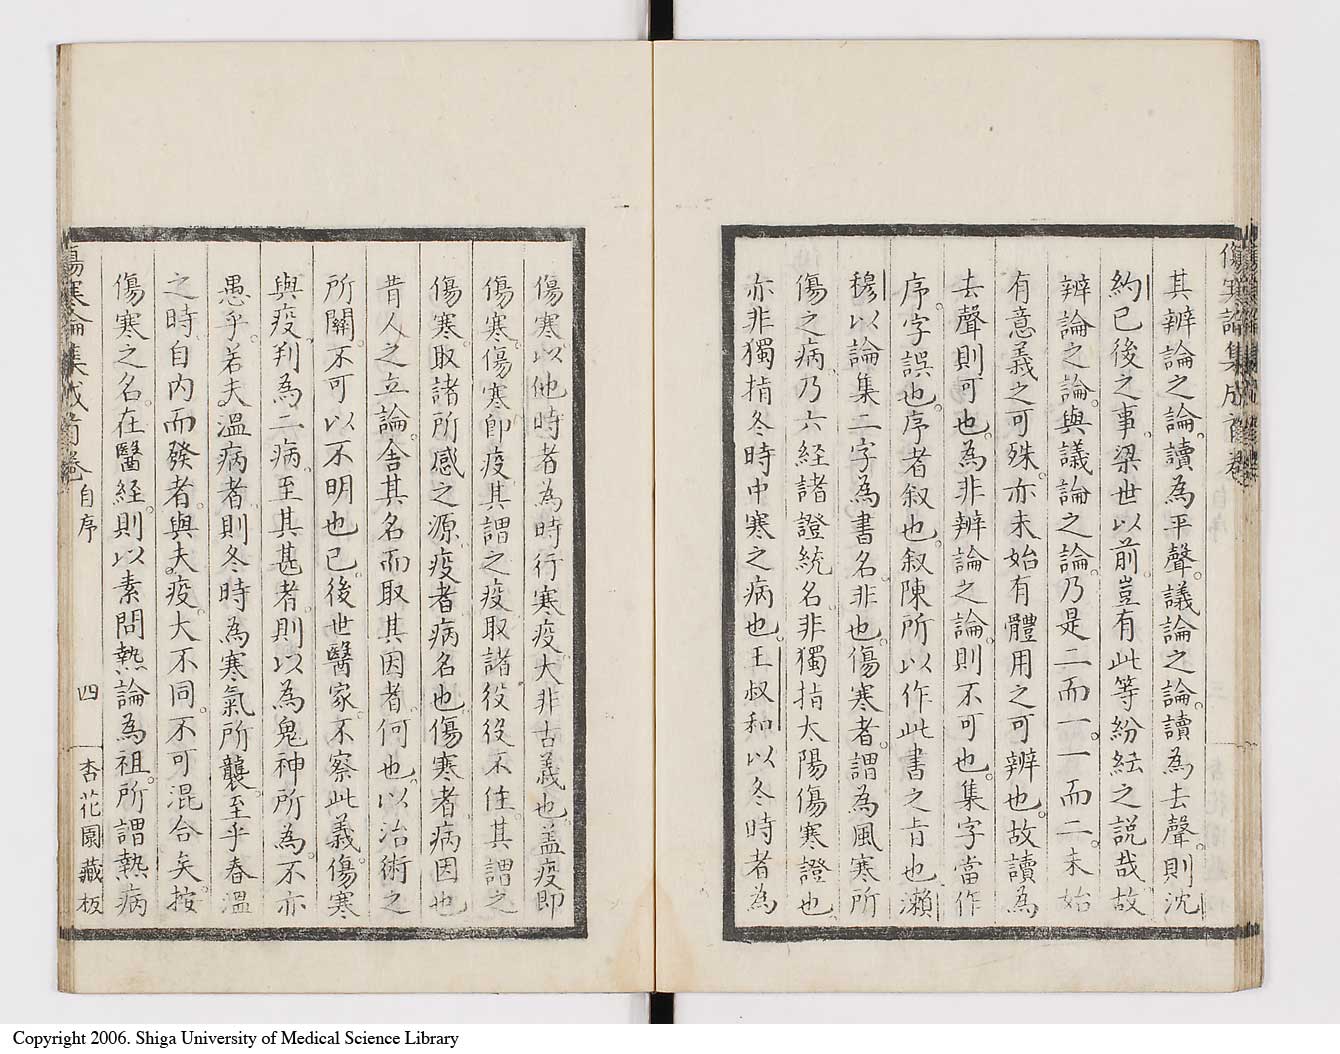 其辨論之論。讀為平聲。議論之論。讀為去聲。則沈
約已後之事。梁世以前。豈有此等紛紜之説哉。故
辨論之論。與議論之論。乃是二而一。一而二。未始
有意義之可殊。亦未始有體用之可辨也。故讀為
去聲則可也。為非辨論之論。則不可也。集字當作
序。字誤也。序者叙也。叙陳所以作此書之旨也。瀨
穆以論集二字為書名。非也。傷寒者。謂為風寒所
傷之病。乃六経諸證統名。非獨指太陽傷寒證也
亦非獨指冬時中寒之病也。王叔和以冬時者為
傷寒。以他時者為時行寒疫。大非古義也。盖疫即
傷寒。傷寒即疫。其謂之疫。取諸役役不住。其謂之
傷寒。取諸所感之源。疫者病名也。傷寒者病因也
昔人之立論。舍其名而取其因者。何也。以治術之
所關。不可以不明也已。後世醫家。不察此義。傷寒
與疫判為二病。至其甚者。則以為鬼神所為。不亦
愚乎。若夫温病者。則冬時為寒氣所襲。至乎春温
之時。自内而發者。與夫疫。大不同。不可混合矣。按
傷寒之名。在醫経。則以素問熱論為祖。所謂熱病
傷寒論集成首卷 自序 四 杏花園藏板
Copyright 2006. Shiga University of Medical Science Library